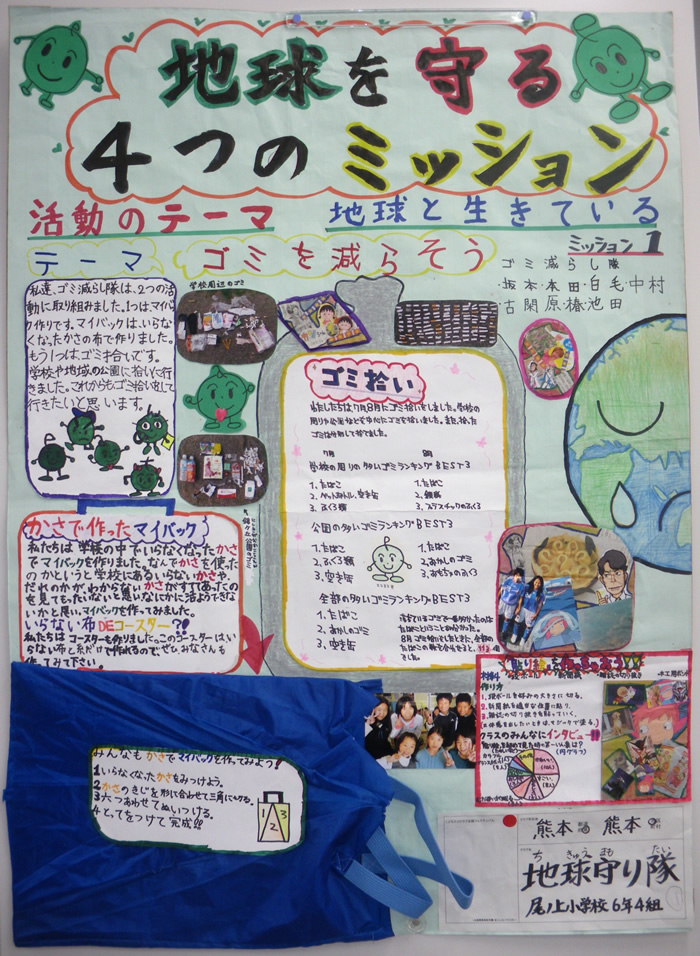 地球を守る
4つのミッション
活動のテーマ 地球と生きている
テーマ ゴミを減らそう
ミッション1
ゴミ減らし隊
坂本・本田・白毛・中村
古閑原・椿・池田
私達、ゴミ減らし隊は、2つの活
動に取り組みました。1つは、マイバッ
ク作りです。マイバックは、いらな
くなったかさの布で作りました。
もう1つは、ゴミ拾いです。
学校や地域の公園に拾いに行
きました。これからもゴミ拾いをして
行きたいと思います。
学校周辺のゴミ
ゴミ拾い
わたしたちは7月8月にゴミ拾いをしました。学校の
周りや公園などを中心にゴミを拾いました。また、拾った
ゴミは分別してすてました。
7月 8月
学校の周りの多いゴミランキング BEST3
1.たばこ 1.たばこ
2.ペットボトル、空き缶 2.
3.ふくろ類 3.プラスチックのふくろ
公園の多いゴミランキングBEST3
1.たばこ 1.たばこ
2.ふくろ類 2.おかしのゴミ
3.空き缶 3.おもちゃのふくろ
全部の多いゴミランキングBEST3
1.たばこ
2.おかしのゴミ
3.空き缶
かさで作ったマイバック
私たちは学校の中でいらなくなったかさ
でマイバックを作りました。なんでかさを使った
のかというと学校にあるいらないかさや、
だれのかが、わからないかさがすててあったの
を見てもったいないなと思いなにかに活用できな
いかと思い、マイバックを作ってみました。
いらない布DEコースター?!
私たちはコースターも作りました。このコースターはい
らない布と糸だけで作れるので、ぜひ、みなさんも
作ってみて下さい。
みんなもかさでマイバックを作ってみよう!
1いらなくなったかさをみつけよう。
2かさのきじを形に合わせて三角に切る。
3六つあわせてぬいつける。
4とってをつけて完成!!
1 2 3
作り方
1.段ボールを好みの大きさに切る。
2.新聞紙を適当な位置に貼り、
3.雑誌の切り抜きを貼っていく。
クラスのみんなにインタビュー!!
(円グラフ)
熊本 熊本
ち きゅう まも たい
地球守り隊
尾ノ上小学校 6年4組